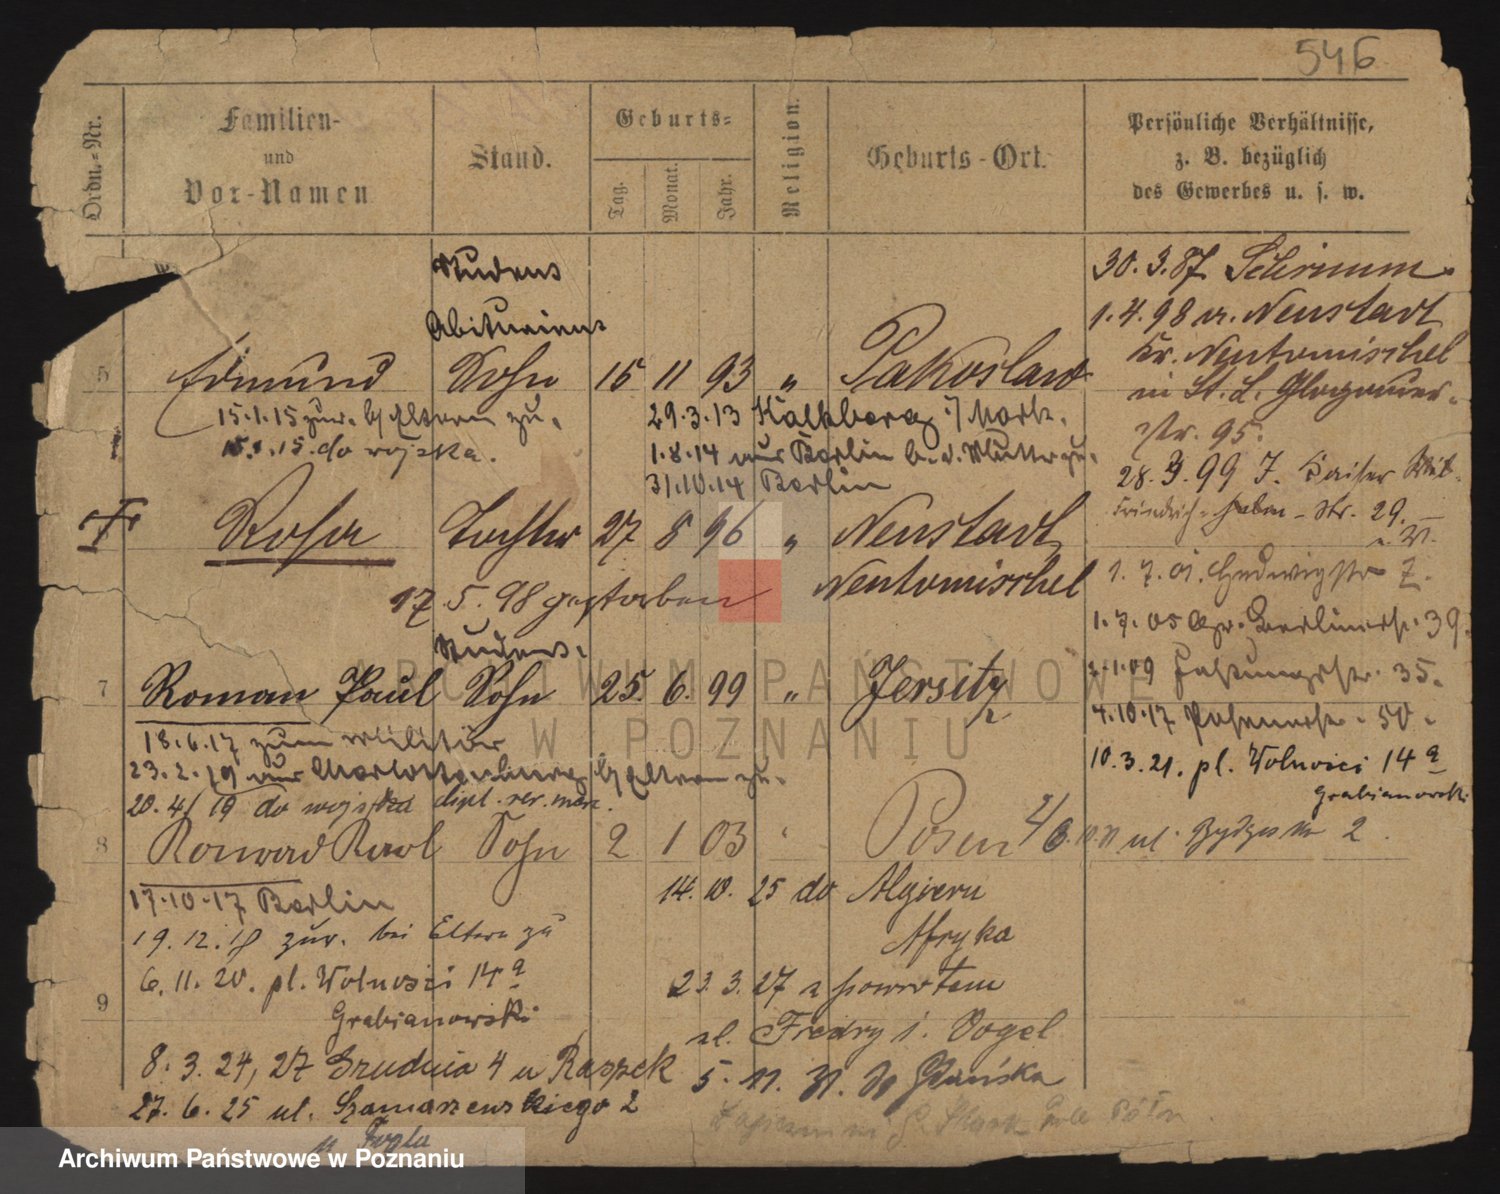 546
Ordn.-Nr.
Familien-
und
Vor-Namen
Stand.
Geburts-
Tag.
Monat.
Jahr.
Religion.
Geburts-Ort.
Persönliche Verhältnisse,
z. B. bezüglich
des Gewerbes u. s. w.
Studens
Abiturient
5 Edmund Sohn 15 11 93 " Pakoslaw
15.1.15 zur. b/ Eltern zu.
15. do wojska.
29.3.13 Kalkberg i/ Mark.
1.8.14 aus Berlin b. d. Mutter zu.
31.10.14 Berlin
Rosa Tochter 27 8 96 " Neustadt
Neutomischel
17. 5. 98 gestorben
Studens.
7 Roman Paul Sohn 25. 6. 99 " Jersitz
18.6.17 zum Militär
23.2.19 aus Charlottenburg b/ Eltern zu.
20.4/19 do wojska
8 Konrad Karl Sohn 2 1 03 " Posen
17.10.17 Berlin
19.12.18 zur. bei Eltern zu
6.11.20. pl. Wolności 14 a
9
Grabianowski
8. 3. 24, 27 Grudnia 4 u Raszek
27.6.25 ul. Szamarzewskiego 2
u Fogla
14. 10. 25 do Algieru
Afryka
23. 3. 27 z powrotem
ul. Fredry i. Vogel
5. 11. 31. do Gdańska
30. 3. 87 Schrimm.
1. 4. 98 v. Neustadt
Kr. Neutomischel
in St. L. Glogauer-
Str. 95.
28. 3. 99 J. Kaiser
Friedrich- Str. 29.
1. 7. 01. Hedwigstr 7.
1. 7. 05 Berlinerstr. 39.
1.09 Festungsstr. 35.
4.10.17 Posenerstr. 50.
10.3.21. pl. Wolności 14 a
Grabianowski
ul. 2.
Archiwum Państwowe w Poznaniu
ARCHIWUM PAŃSTWOWE
W POZNANIU